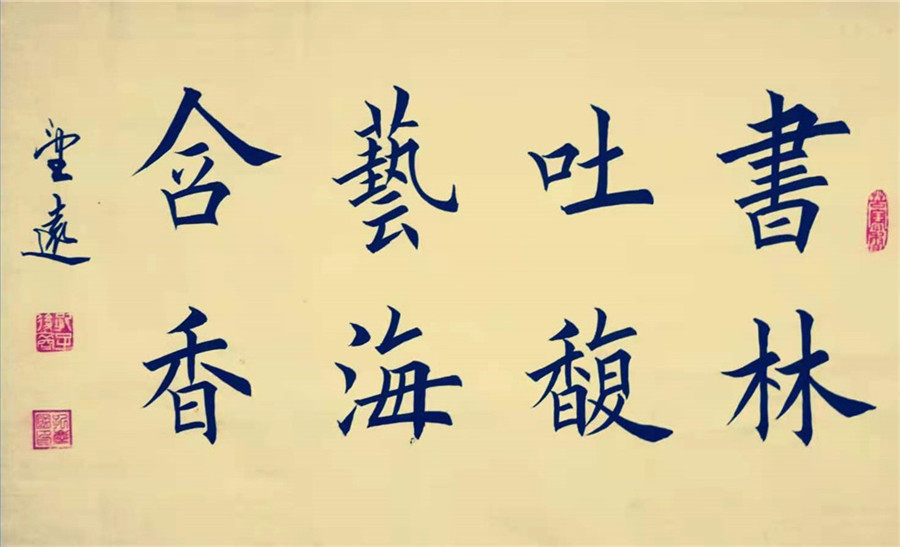 書林
吐馥
藝海
含香
遠